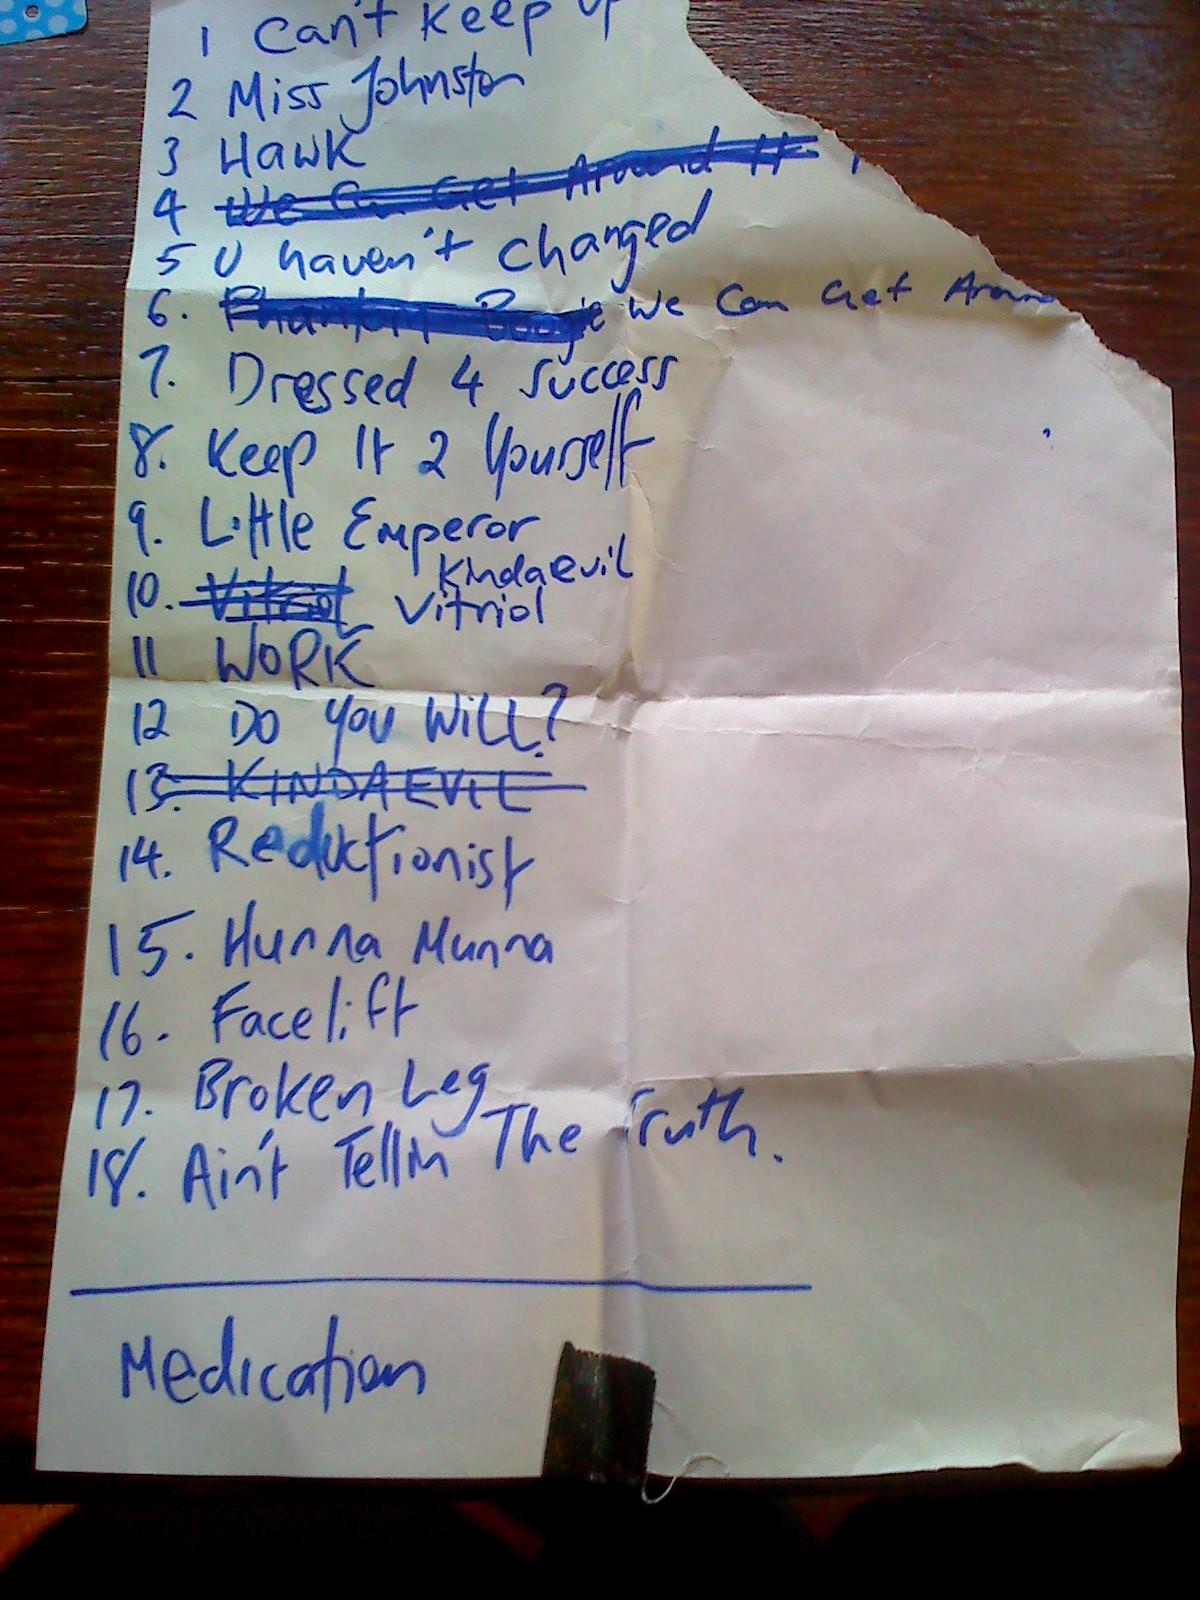 1 Can't Keep Up
2 Miss Johnston
3 Hawk
4 We Can Get Around It
5 U haven't changed
6. Phantom Boogie We Can Get Aroun
7. Dressed 4 Success
8. Keep It 2 Yourself
9. Little Emperor
Kindaevil
10. Vitriol Vitriol
11 WORK
12 DO YOU WILL?
13. KINDAEVIL
14. Reductionist
15. Hunna Munna
16. Facelift
17. Broken Leg
18. Ain't Tellin The Truth.
Medication